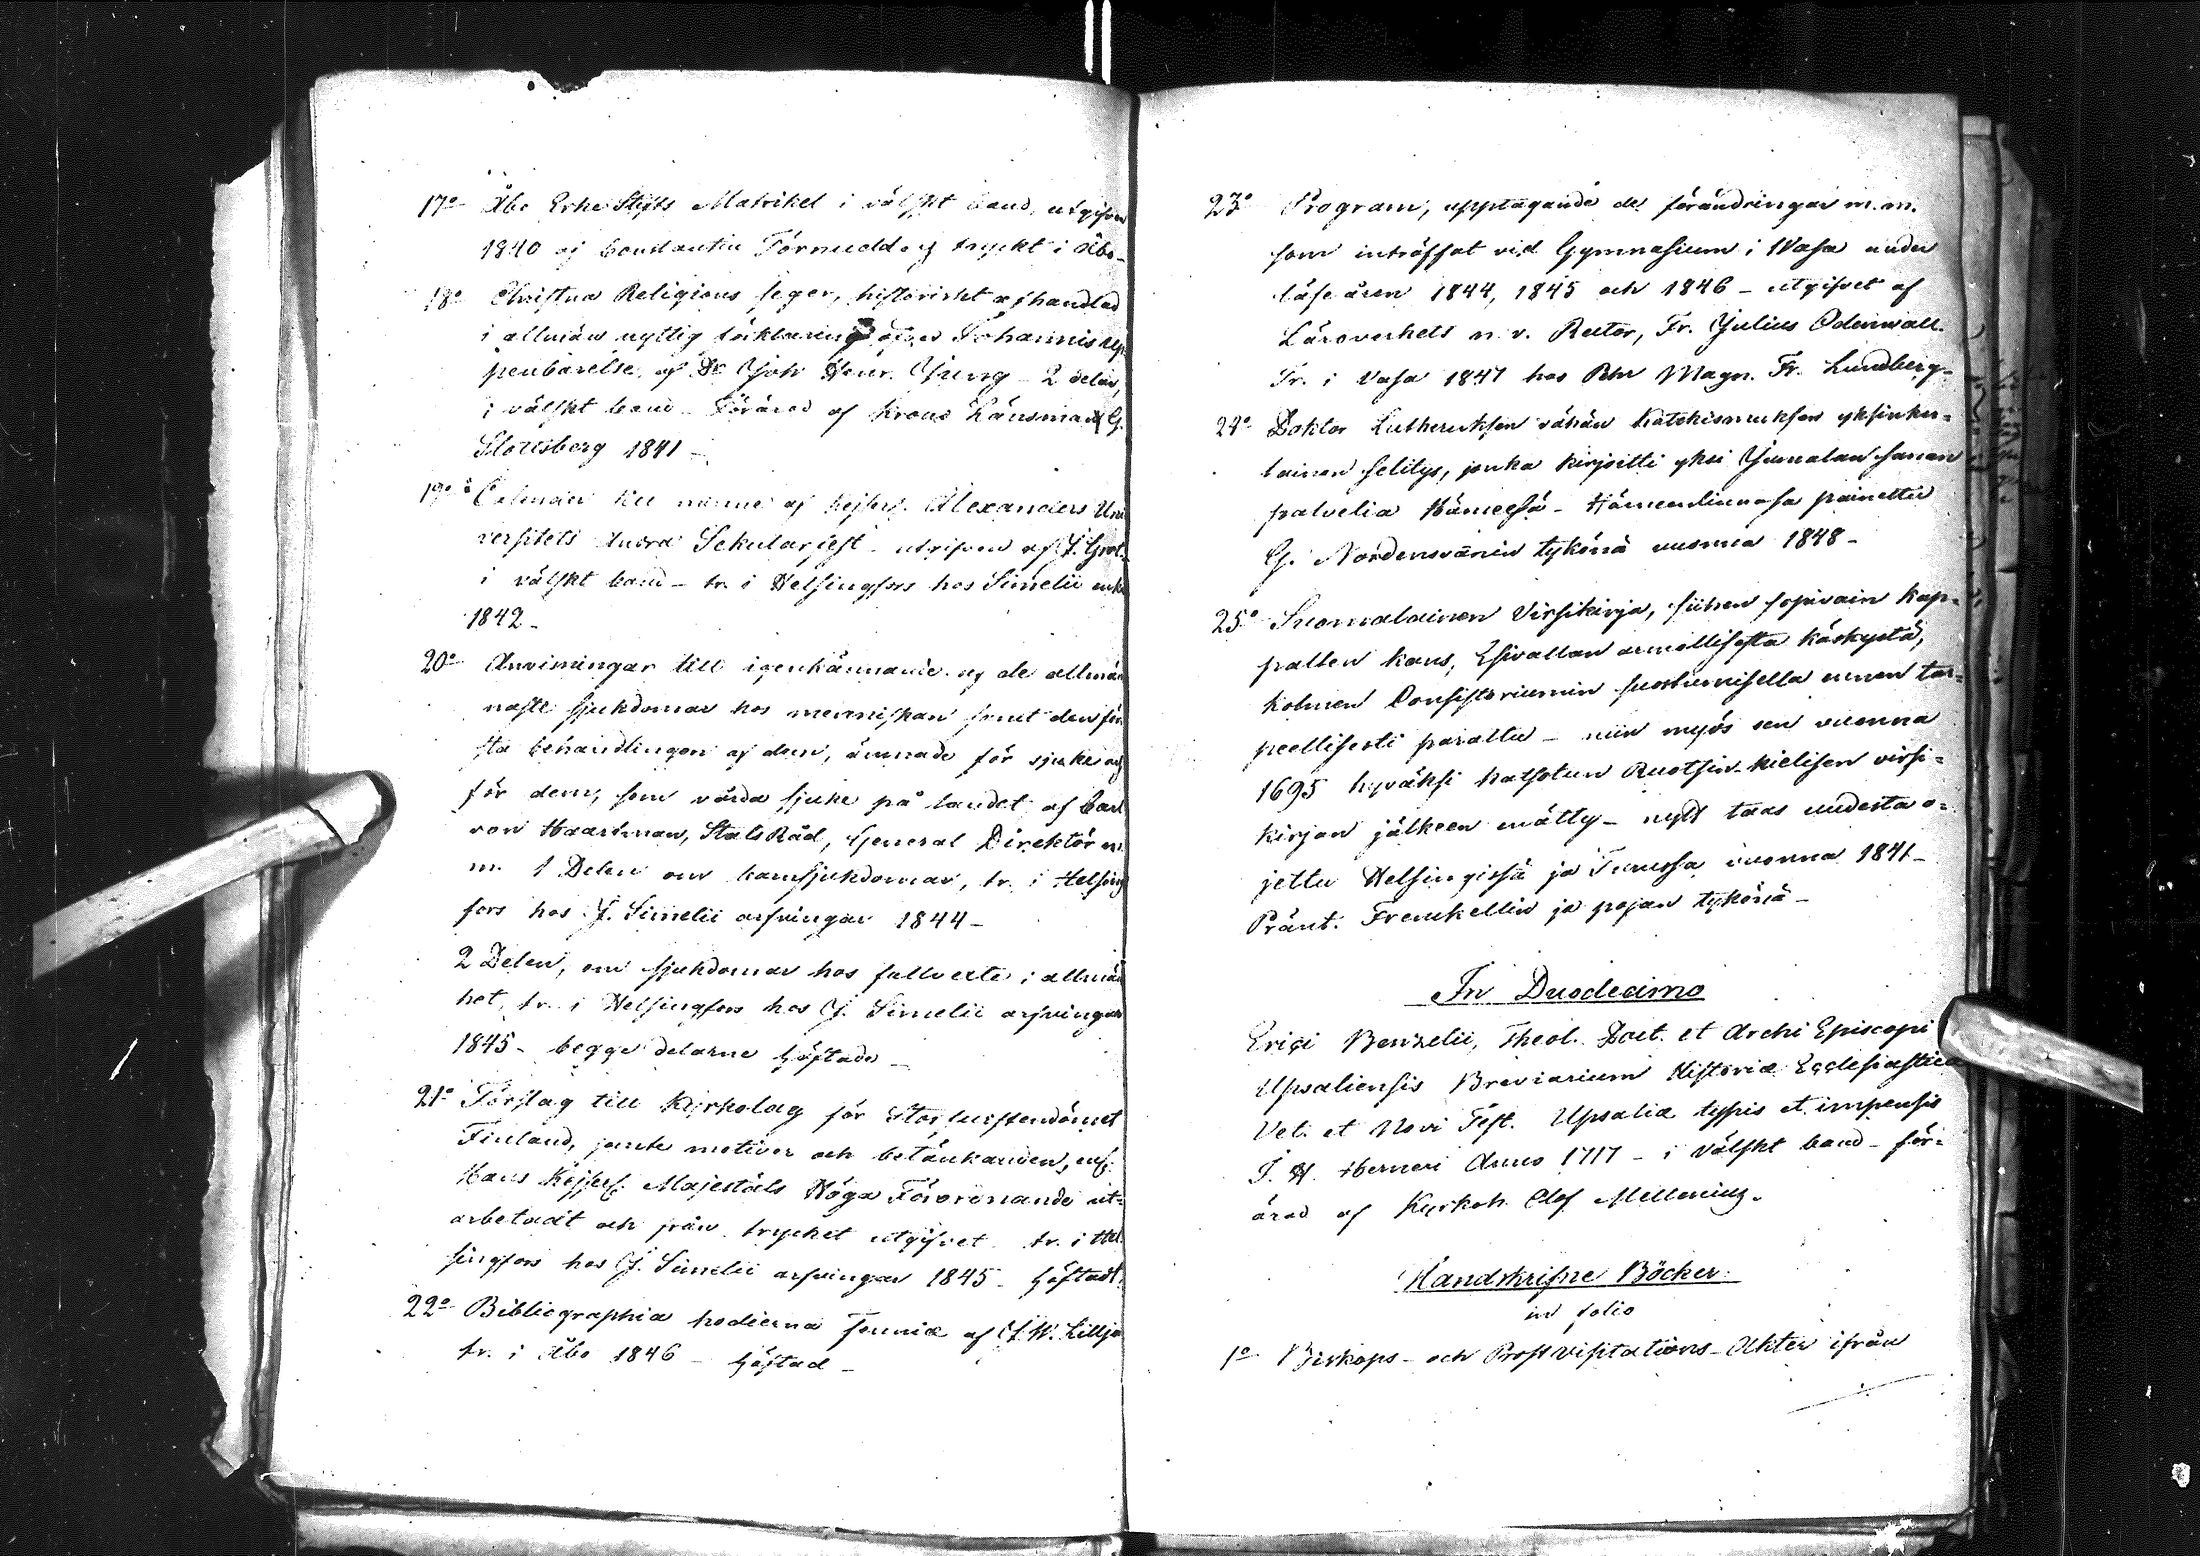 17o Åbo Erke Stifts Matrikel i välskt band, utgifven
1840 af Constantin Förnudd og tryckt i Åbo-
18o Christna Religions seger, historiskt afhandlad
i allmän nyttig förklaring öfver Johannis up
penbarelse, af Dr Joh Henr. Jung - 2 delar,
i välskt band - Förärad af Krono Länsman G.
Slottsberg 1841 -
19o Calender till minne af Kejserl. Alexanders Uni
versitets Andra Sekularfest - utgifven af J. Grot.
i välskt band - tr. i Helsingfors hos Simelii enka
1842 -
20o Anvisningar till igenkännande af de allmän
naste sjukdomar hos menniskan samt den för
sta behandlingen af dem, ämnade för sjuke och
för dem, som vårda sjuke på landet af Carl
von Haartman, Stats Råd, General Direktör m.
m. 1 Delen om barnsjukdomar, tr. i Helsing
fors hos J. Simelii arfvingar 1844 -
2 Delen, om sjukdomar hos fullvexte i allmän
het, tr. i Helsingfors hos J. Simelii arfvingar
1845 - begge delarne häftade -
21o Förslag till Kyrkolag för Storfurstendömet
Finland, jemte motiver och betänkanden, enl.
Hans Kejserl. Majestäts Höga Förordnande ut-
arbetadt och från trycket utgifvet - tr. i Hel
singfors hos J. Simelii arfvingar 1845 - häftadt.
22o Bibliographia hodierna Fennia af J. W. Lillja
tr. i Åbo 1846 - häftad -
23o Program, upptagande de förändringar m.m.
som inträffat vid Gymnasium i Wasa under
läseåren 1844, 1845 och 1846 - utgifvet af
Läroverkets n. v. Rector, Fr. Julius Odenwall.
Tr. i Vasa 1847 hos Phr Magn. Fr. Lundberg-
24o Doktor Lutheruksen vähän Katekismuksen yksinker-
tainen selitys, jonka kirjoitti yksi Jumalan sanan
palvelia Hämeesä - Hämeenlinnasa painettu
G. Nordensvanin tykönä vuonna 1848 -
25o Suomalainen Virsikirja, siihen sopivain kap-
palten kans, Esivallan armollisesta käskystä,
kolmen Consistoriumin suostumisella ennen tar-
peellisesti parattu - niin myös sen vuonna
1695 hyväksi katsotun Ruotsin-kielisen virsi-
kirjan jälkeen enätty - nyt taas uudesta o-
jettu Helsingissä ja Turussa vuonna 1841 -
Pränt. Frenckellin ja pojan tykönä -
In Duodecimo
Erici Benzelii, Theol. Doct. et Archi Episcopi
Upsaliensis Breviarium Historiæ Ecclesiasticæ
Vet. et Novi Test. Upsaliæ typis et impensis
J. H. Werneri Anno 1717 - i välskt band - för-
ärad af Kyrkoh. Olof Mellenius.
Handskrifne Böcker.
in folio
1o Biskops- och Prost Visitations-Akter ifrån